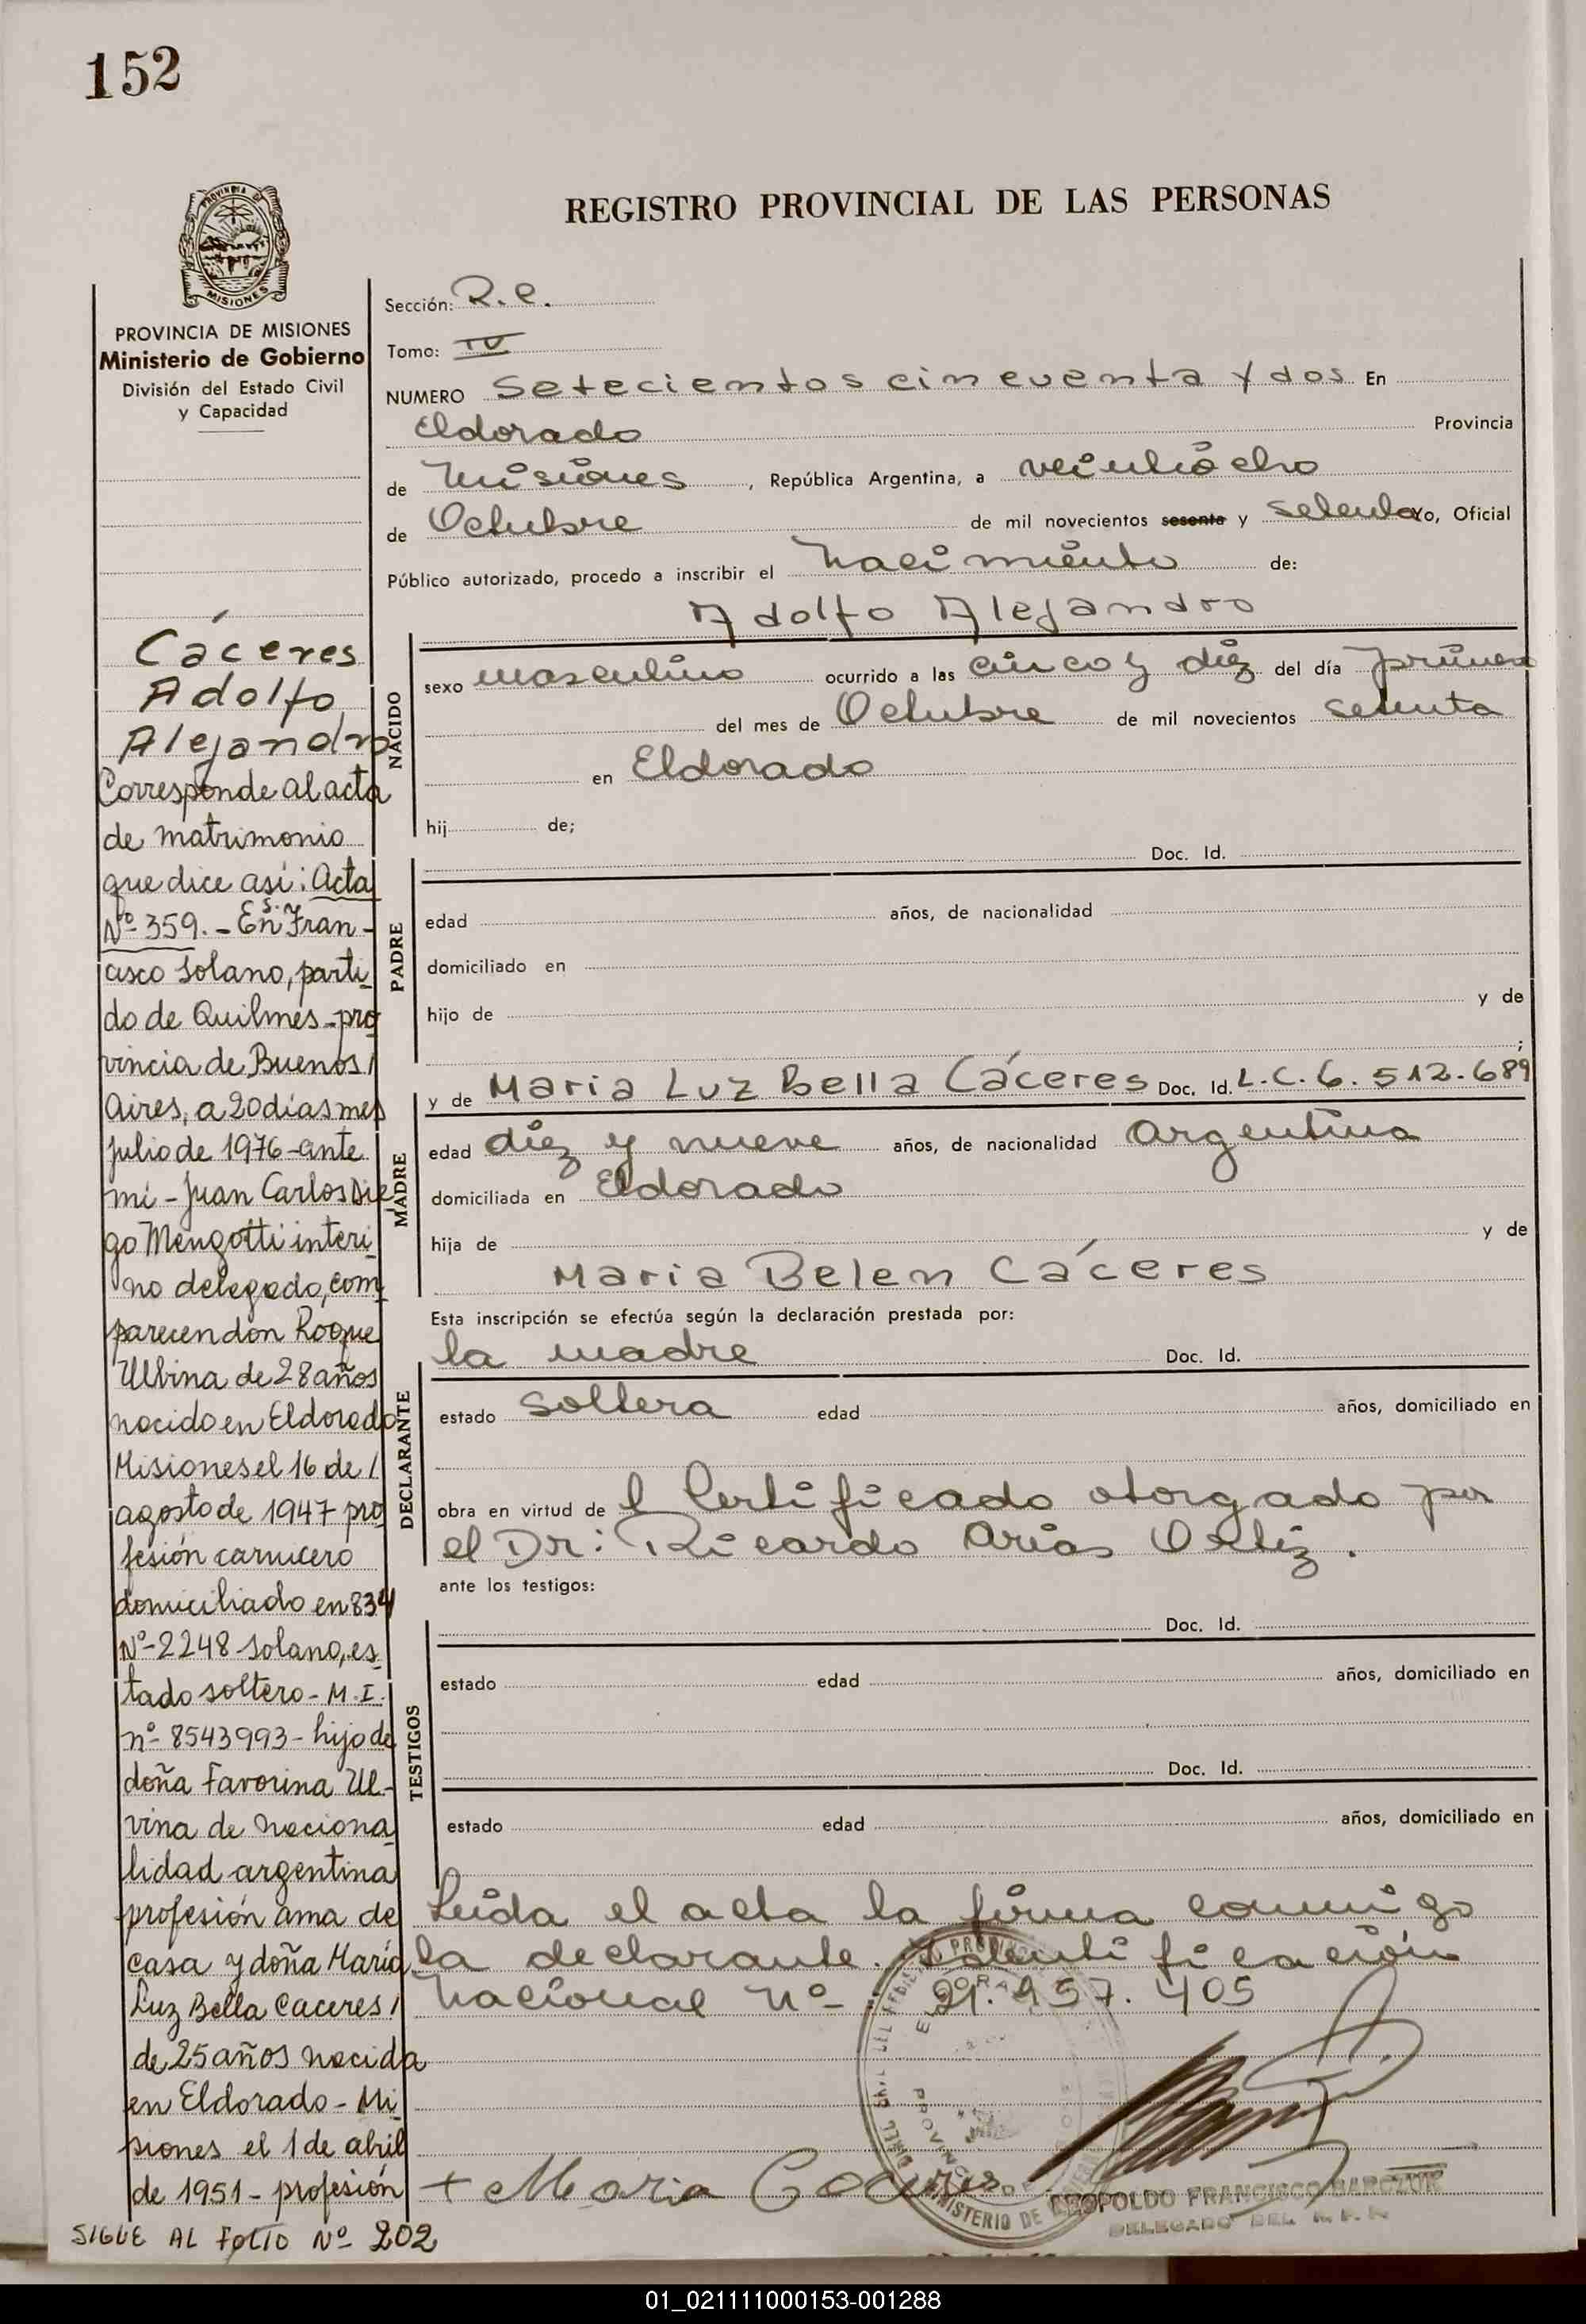 152
REGISTRO PROVINCIAL DE LAS PERSONAS
PROVINCIA DE MISIONES
Ministerio de Gobierno
División del Estado Civil
y Capacidad
Cáceres
Adolfo
Alejandro
Corresponde al acta
de matrimonio
que dice así: Acta
Nº 359.- En S. Fran-
cisco Solano, parti-
do de Quilmes - pro
vincia de Buenos /
Aires, a 20 días mes
julio de 1976 - ante
mí - Juan Carlos Die
go Mengotti interi-
no delegado, com-
parecen don Roque
Ulbina de 28 años
nacido en Eldorado
Misiones el 16 de /
agosto de 1947 pro
fesión carnicero
domiciliado en 834
Nº-2248 Solano, es-
tado soltero - M.I.
nº 8543993 - hijo de
doña Favorina Ul-
vina de naciona-
lidad argentina
profesión ama de
casa y doña María
Luz Bella Caceres /
de 25 años nacida
en Eldorado - Mi-
siones el 1 de abril
de 1951 - profesión
SIGUE AL FOLIO Nº 202
Sección: R. C.
Tomo: IV
NUMERO Setecientos cincuenta y dos En
Eldorado Provincia
de Misiones, República Argentina, a veintiocho
de Octubre de mil novecientos sesenta y setenta Yo, Oficial
Público autorizado, procedo a inscribir el nacimiento de:
Adolfo Alejandro
NACIDO
sexo masculino ocurrido a las cinco y diez del día primero
del mes de Octubre de mil novecientos setenta
en Eldorado
hij de;
Doc. Id.
PADRE
edad años, de nacionalidad
domiciliado en
hijo de y de
;
MADRE
y de Maria Luz Bella Cáceres Doc. Id. L.C. 6.512.689
edad diez y nueve años, de nacionalidad argentina
domiciliada en Eldorado
hija de y de
Maria Belen Cáceres
Esta inscripción se efectúa según la declaración prestada por:
la madre Doc. Id.
DECLARANTE
estado soltera edad años, domiciliado en
obra en virtud de l Certificado otorgado por
el Dr: Ricardo Arias Ortiz.
ante los testigos:
Doc. Id.
TESTIGOS
estado edad años, domiciliado en
Doc. Id.
estado edad años, domiciliado en
Leida el acta la firma conmigo
la declarante. Identificación
Nacional Nº 21.957.405
+ Maria Caceres
LEOPOLDO FRANCISCO BARCZUK
DELEGADO DEL R. P. P.
01_021111000153-001288